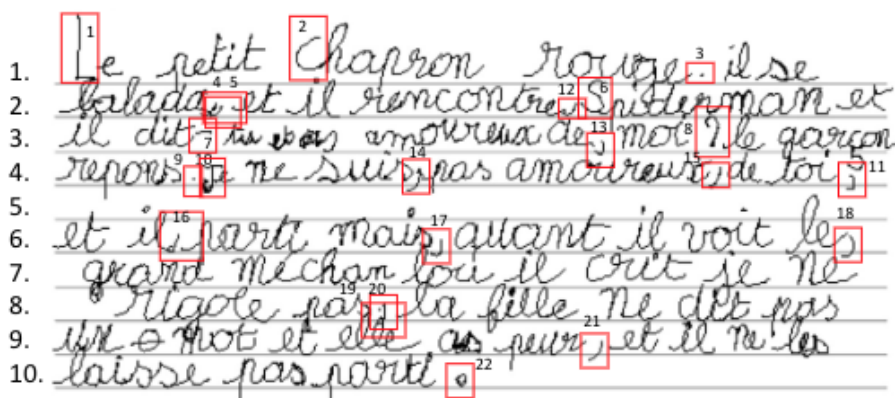 1. Le petit Chapron rouge . il se
2. balada , et il rencontre , Spiderman et
3. il dit : tu amoureux de , moi ? le garçon
4. repons . Je ne suis , pas amoureux , de toi ,
5.
6. et il . parti mais , quant il voit le ,
7. grand méchan lou il crit je ne
8. rigole pas . la fille ne dit pas
9. un mot et elle as peur , et il ne les
10. laisse pas parti .
1 2 3 4 5 6 7 8 9 10 11 12 13 14 15 16 17 18 19 20 21 22